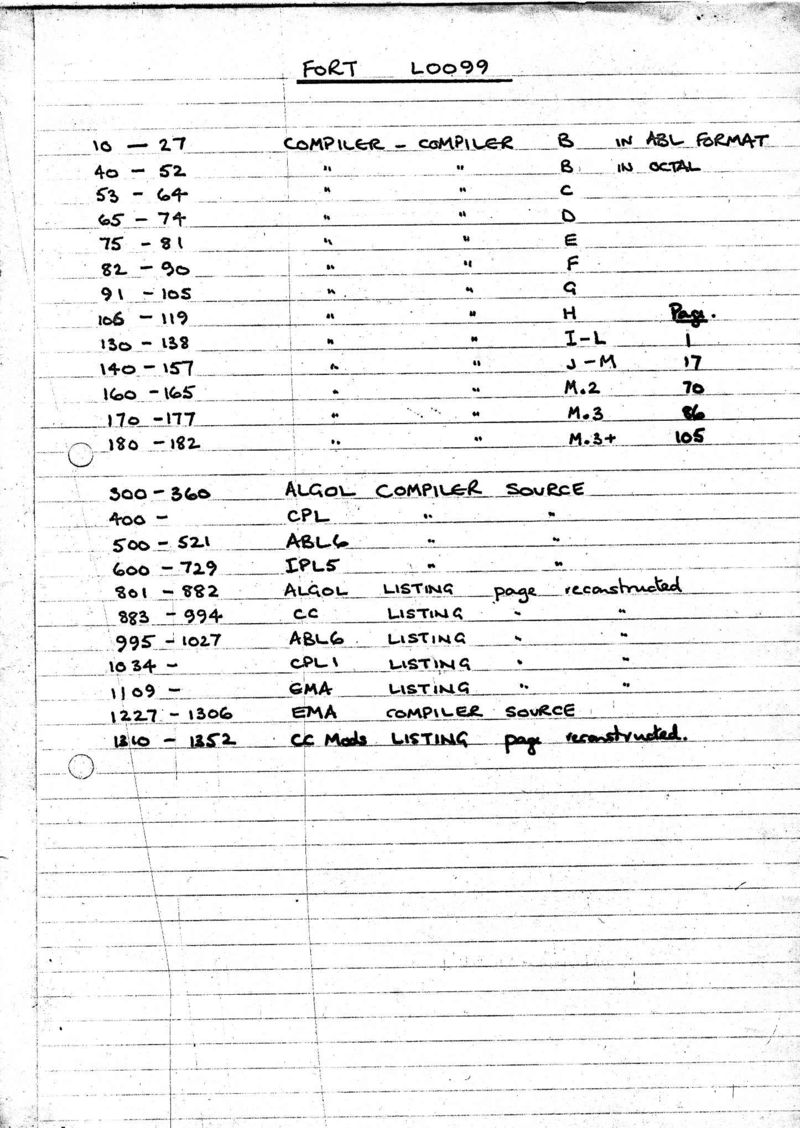 FORT L0099
10 - 27 COMPILER - COMPILER B IN ABL FORMAT
40 - 52 " " B IN OCTAL
53 - 64 " " C
65 - 74 " " D
75 - 81 " " E
82 - 90 " " F
91 - 105 " " G
106 - 119 " " H Page.
130 - 138 " " I-L 1
140 - 157 " " J-M 17
160 - 165 " " M.2 70
170 - 177 " " M.3 86
180 - 182 " " M.3+ 105
300 - 360 ALGOL COMPILER SOURCE
400 - CPL " "
500 - 521 ABL6 " "
600 - 729 IPL5 " "
801 - 882 ALGOL LISTING page reconstructed
883 - 994 CC LISTING " "
995 - 1027 ABL6 LISTING " "
1034 - CPL1 LISTING " "
1109 - EMA LISTING " "
1227 - 1306 EMA COMPILER SOURCE
1310 - 1352 CC Mods LISTING page reconstructed.